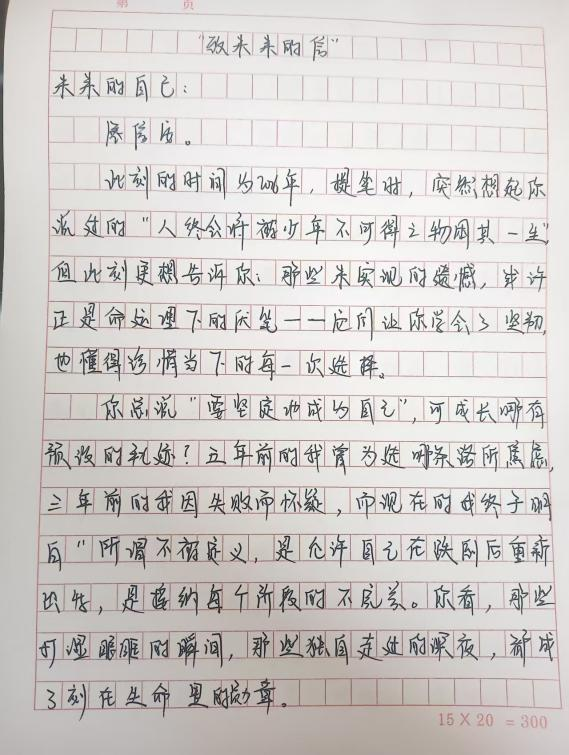 第 页
"致未来的信"
未来的自己：
展信安。
此刻的时间为2026年，提笔时，突然想起你
说过的"人终会将被少年不可得之物困其一生"
但此刻更想告诉你：那些未实现的遗憾，或许
正是命运埋下的伏笔——时间让你学会了坚韧，
也懂得珍惜当下的每一次选择。
你总说"要坚定地成为自己"，可成长哪有
预设的轨迹？五年前的我曾为选哪条路所焦虑，
三年前的我因失败而怀疑，而现在的我终于明
白"所谓不被定义，是允许自己在跌倒后重新
出发，是接纳每个阶段的不完美。你看，那些
打湿眼眶的瞬间，那些独自走过的深夜，都成
了刻在生命里的勋章。
15 X 20 = 300